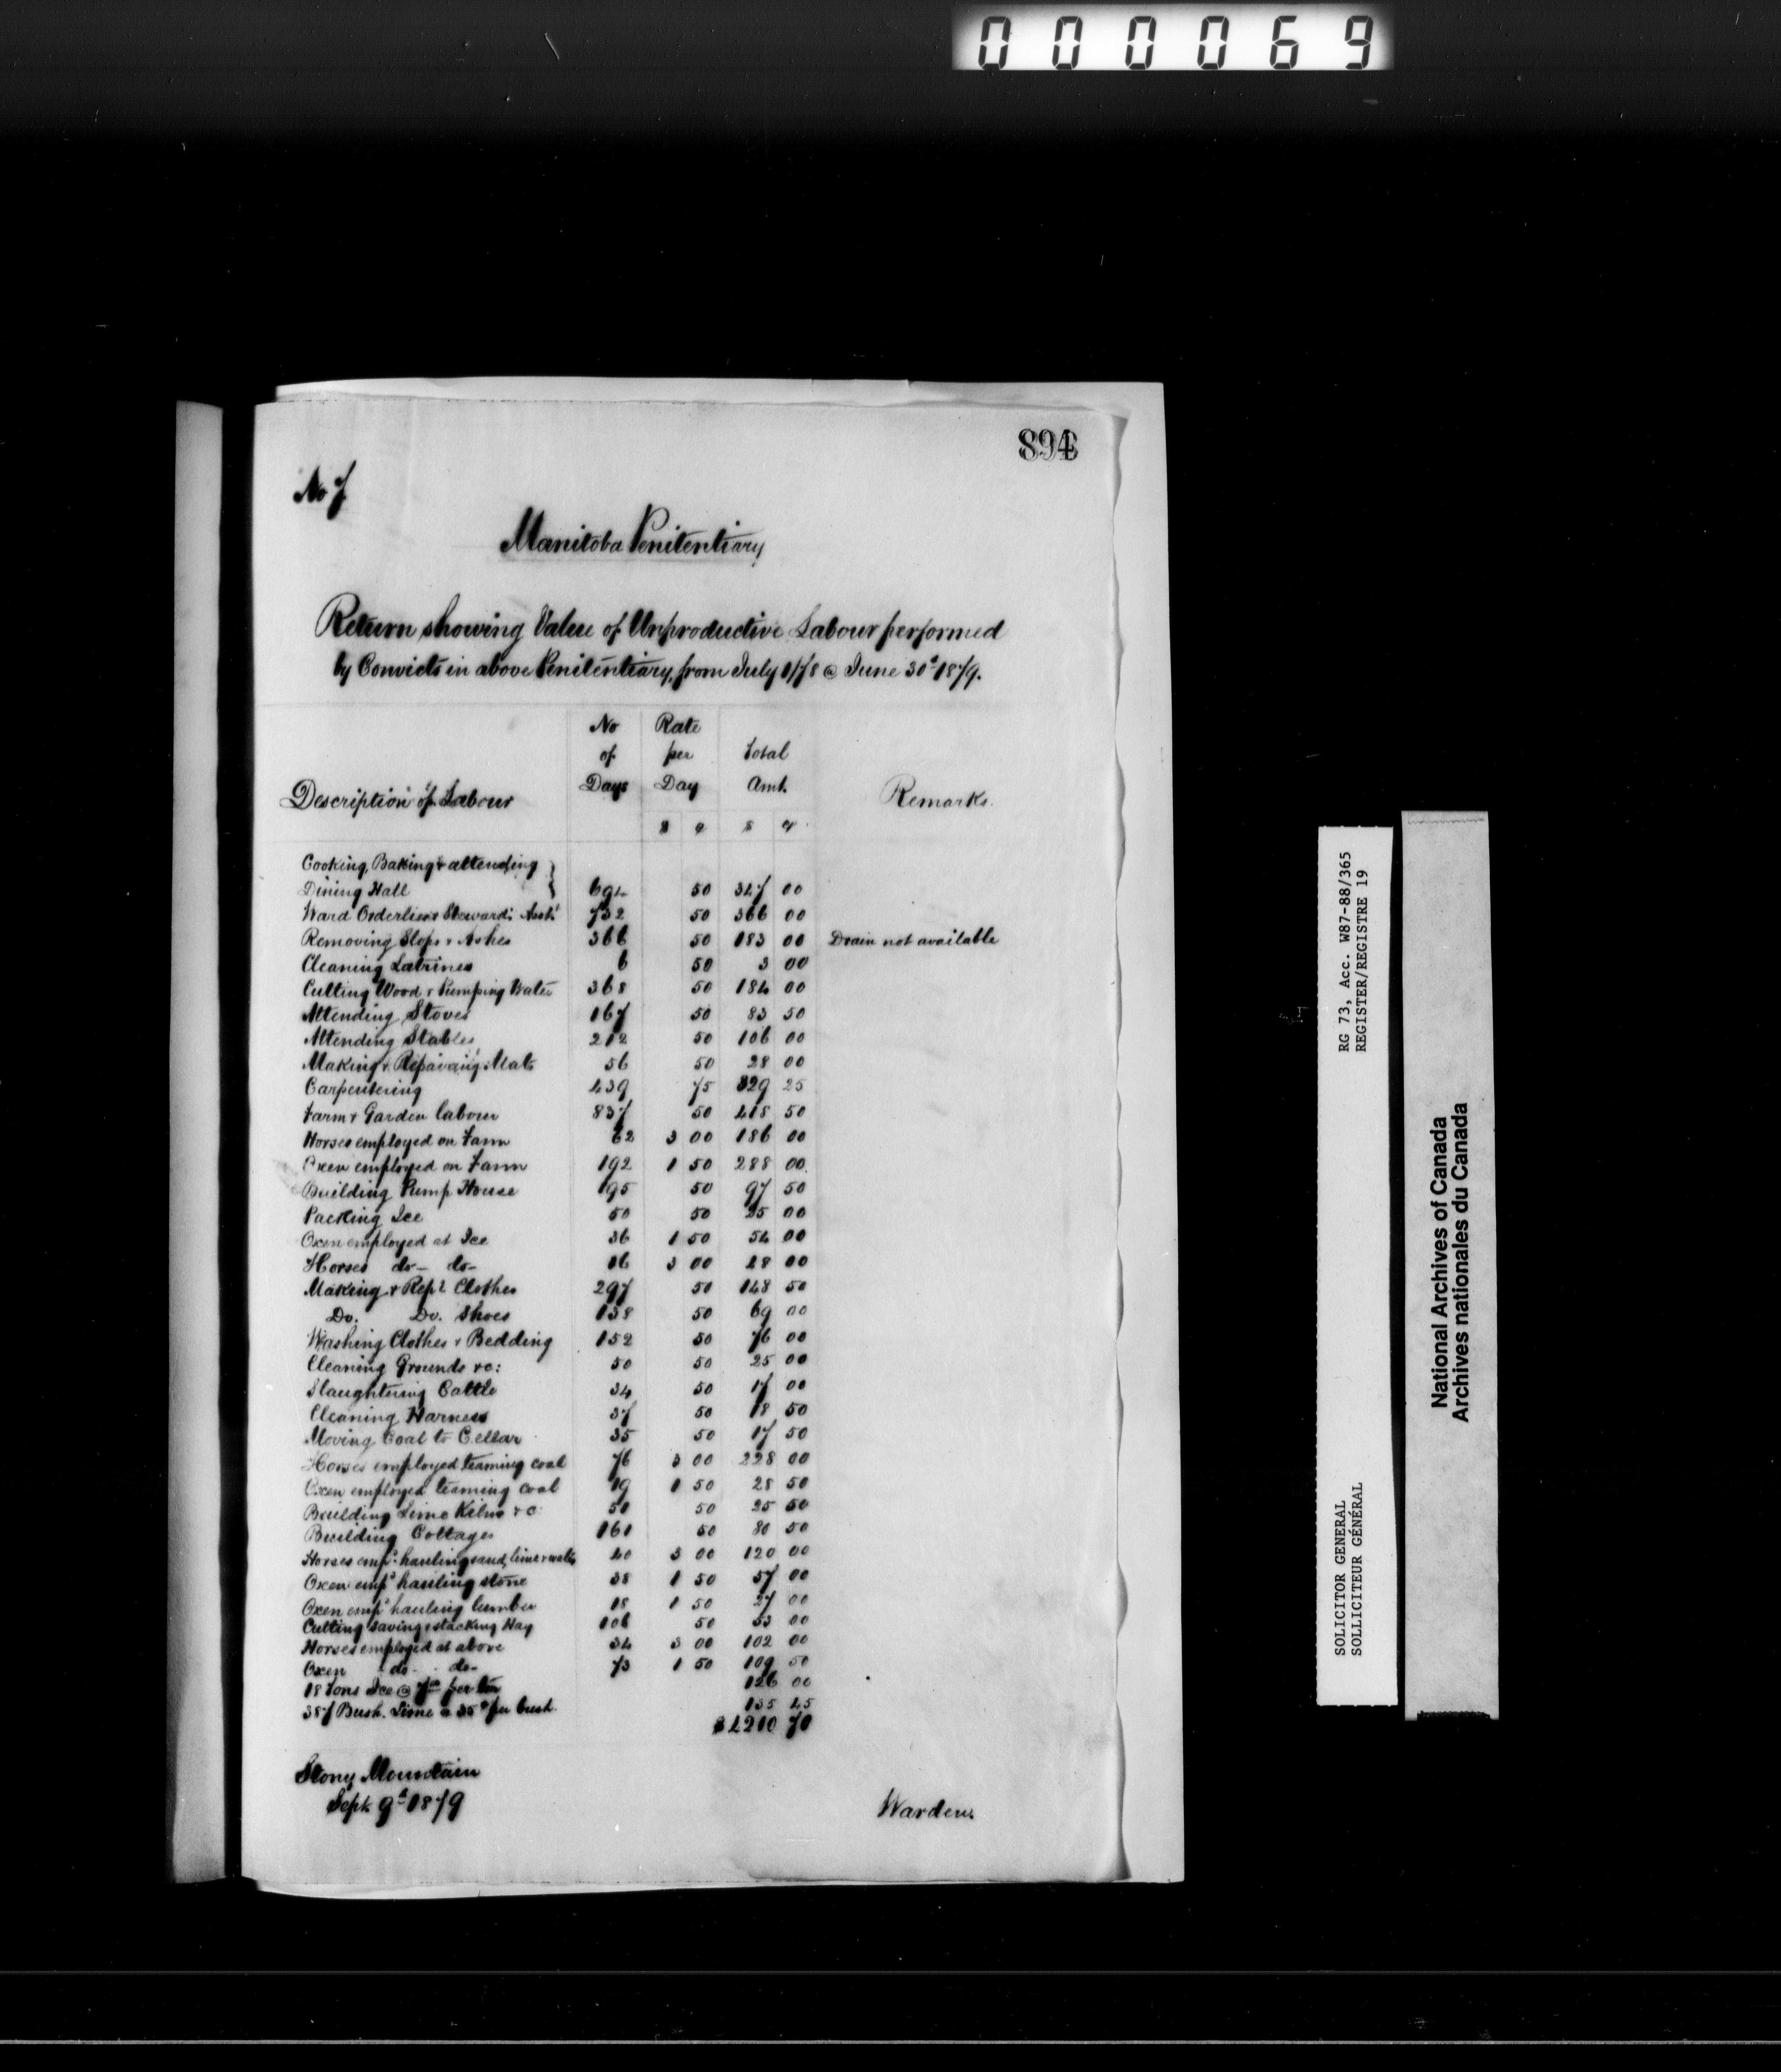 000069
894
No 7
Manitoba Penitentiary
Return showing Value of Unproductive Labour performed
by Convicts in above Penitentiary, from July 1/78 @ June 30th 1879.
Description of Labour No of Days Rate per Day Total Amt. Remarks.
$ c $ c
Cooking, Baking & attending
Dining Hall 694 50 347 00
Ward Orderlies & Steward's Asst. 732 50 366 00
Removing Slops & Ashes 366 50 183 00 Drain not available
Cleaning Latrines 6 50 3 00
Cutting Wood & Pumping Water 368 50 184 00
Attending Stoves 167 50 83 50
Attending Stables 212 50 106 00
Making & Repairing Mats 56 50 28 00
Carpentering 439 75 329 25
Farm & Garden labour 837 50 418 50
Horses employed on Farm 62 3 00 186 00
Oxen employed on Farm 192 1 50 288 00
Building Pump House 195 50 97 50
Packing Ice 50 50 25 00
Oxen employed at Ice 36 1 50 54 00
Horses do- do- 16 3 00 48 00
Making & Rep's Clothes 297 50 148 50
Do. Do. Shoes 138 50 69 00
Washing Clothes & Bedding 152 50 76 00
Cleaning Grounds &c: 50 50 25 00
Slaughtering Cattle 34 50 17 00
Cleaning Harness 37 50 18 50
Moving Coal to Cellar 35 50 17 50
Horses employed teaming coal 76 3 00 228 00
Oxen employed teaming coal 19 1 50 28 50
Building Lime Kilns &c 51 50 25 50
Building Cottages 161 50 80 50
Horses emp'd hauling sand, lime & water 40 3 00 120 00
Oxen emp'd hauling stone 38 1 50 57 00
Oxen emp'd hauling lumber 18 1 50 27 00
Cutting saving & stacking Hay 106 50 53 00
Horses employed at above 34 3 00 102 00
Oxen do- do- 73 1 50 109 50
18 Tons Ice @ 7 00 per ton 126 00
387 Bush. Lime @ 35 c per bush. 135 45
$ 4210 70
Stony Mountain
Sept 9th 1879
Warden.
RG 73, Acc. W87-88/365
REGISTER/REGISTRE 19
SOLICITOR GENERAL
SOLLICITEUR GÉNÉRAL
National Archives of Canada
Archives nationales du Canada